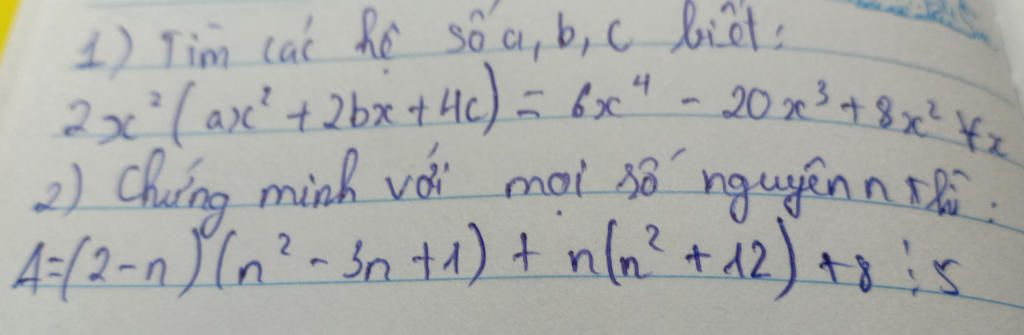 1) Tìm các hệ số a, b, c biết:
2x²(ax² + 2bx + 4c) = 6x⁴ - 20x³ + 8x² ∀x
2) Chứng minh với mọi số nguyên n thì:
A=(2-n)(n² - 3n + 1) + n(n² + 12) + 8 ⋮ 5